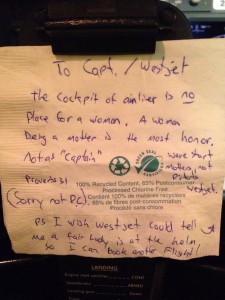 To Capt. / Westjet
the Cockpit of airliner is no
Place for a woman. A woman
being a mother is the most honor.
Not as "captain"
were short
mothers, not
pilots
westjet.
Proverbs 31
(Sorry not P.C.)
GREEN SEAL
100% Recycled Content, 85% Postconsumer
Processed Chlorine Free
Contient 100% de matières recyclées
85% de fibres post-consommation
Procédé sans chlore
PS I wish westjet could tell
me a fair lady is at the helm
so I can book another flight!
LANDING